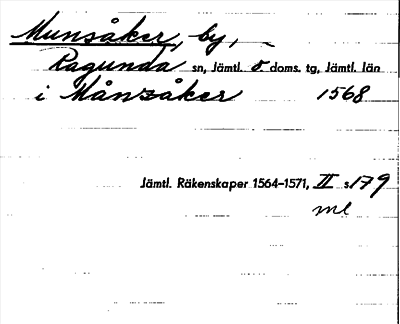 Munsåker, by,
Ragunda sn, Jämtl. ö doms. tg, Jämtl. län
i Månzåker 1568
Jämtl. Räkenskaper 1564-1571, II s 179
ml